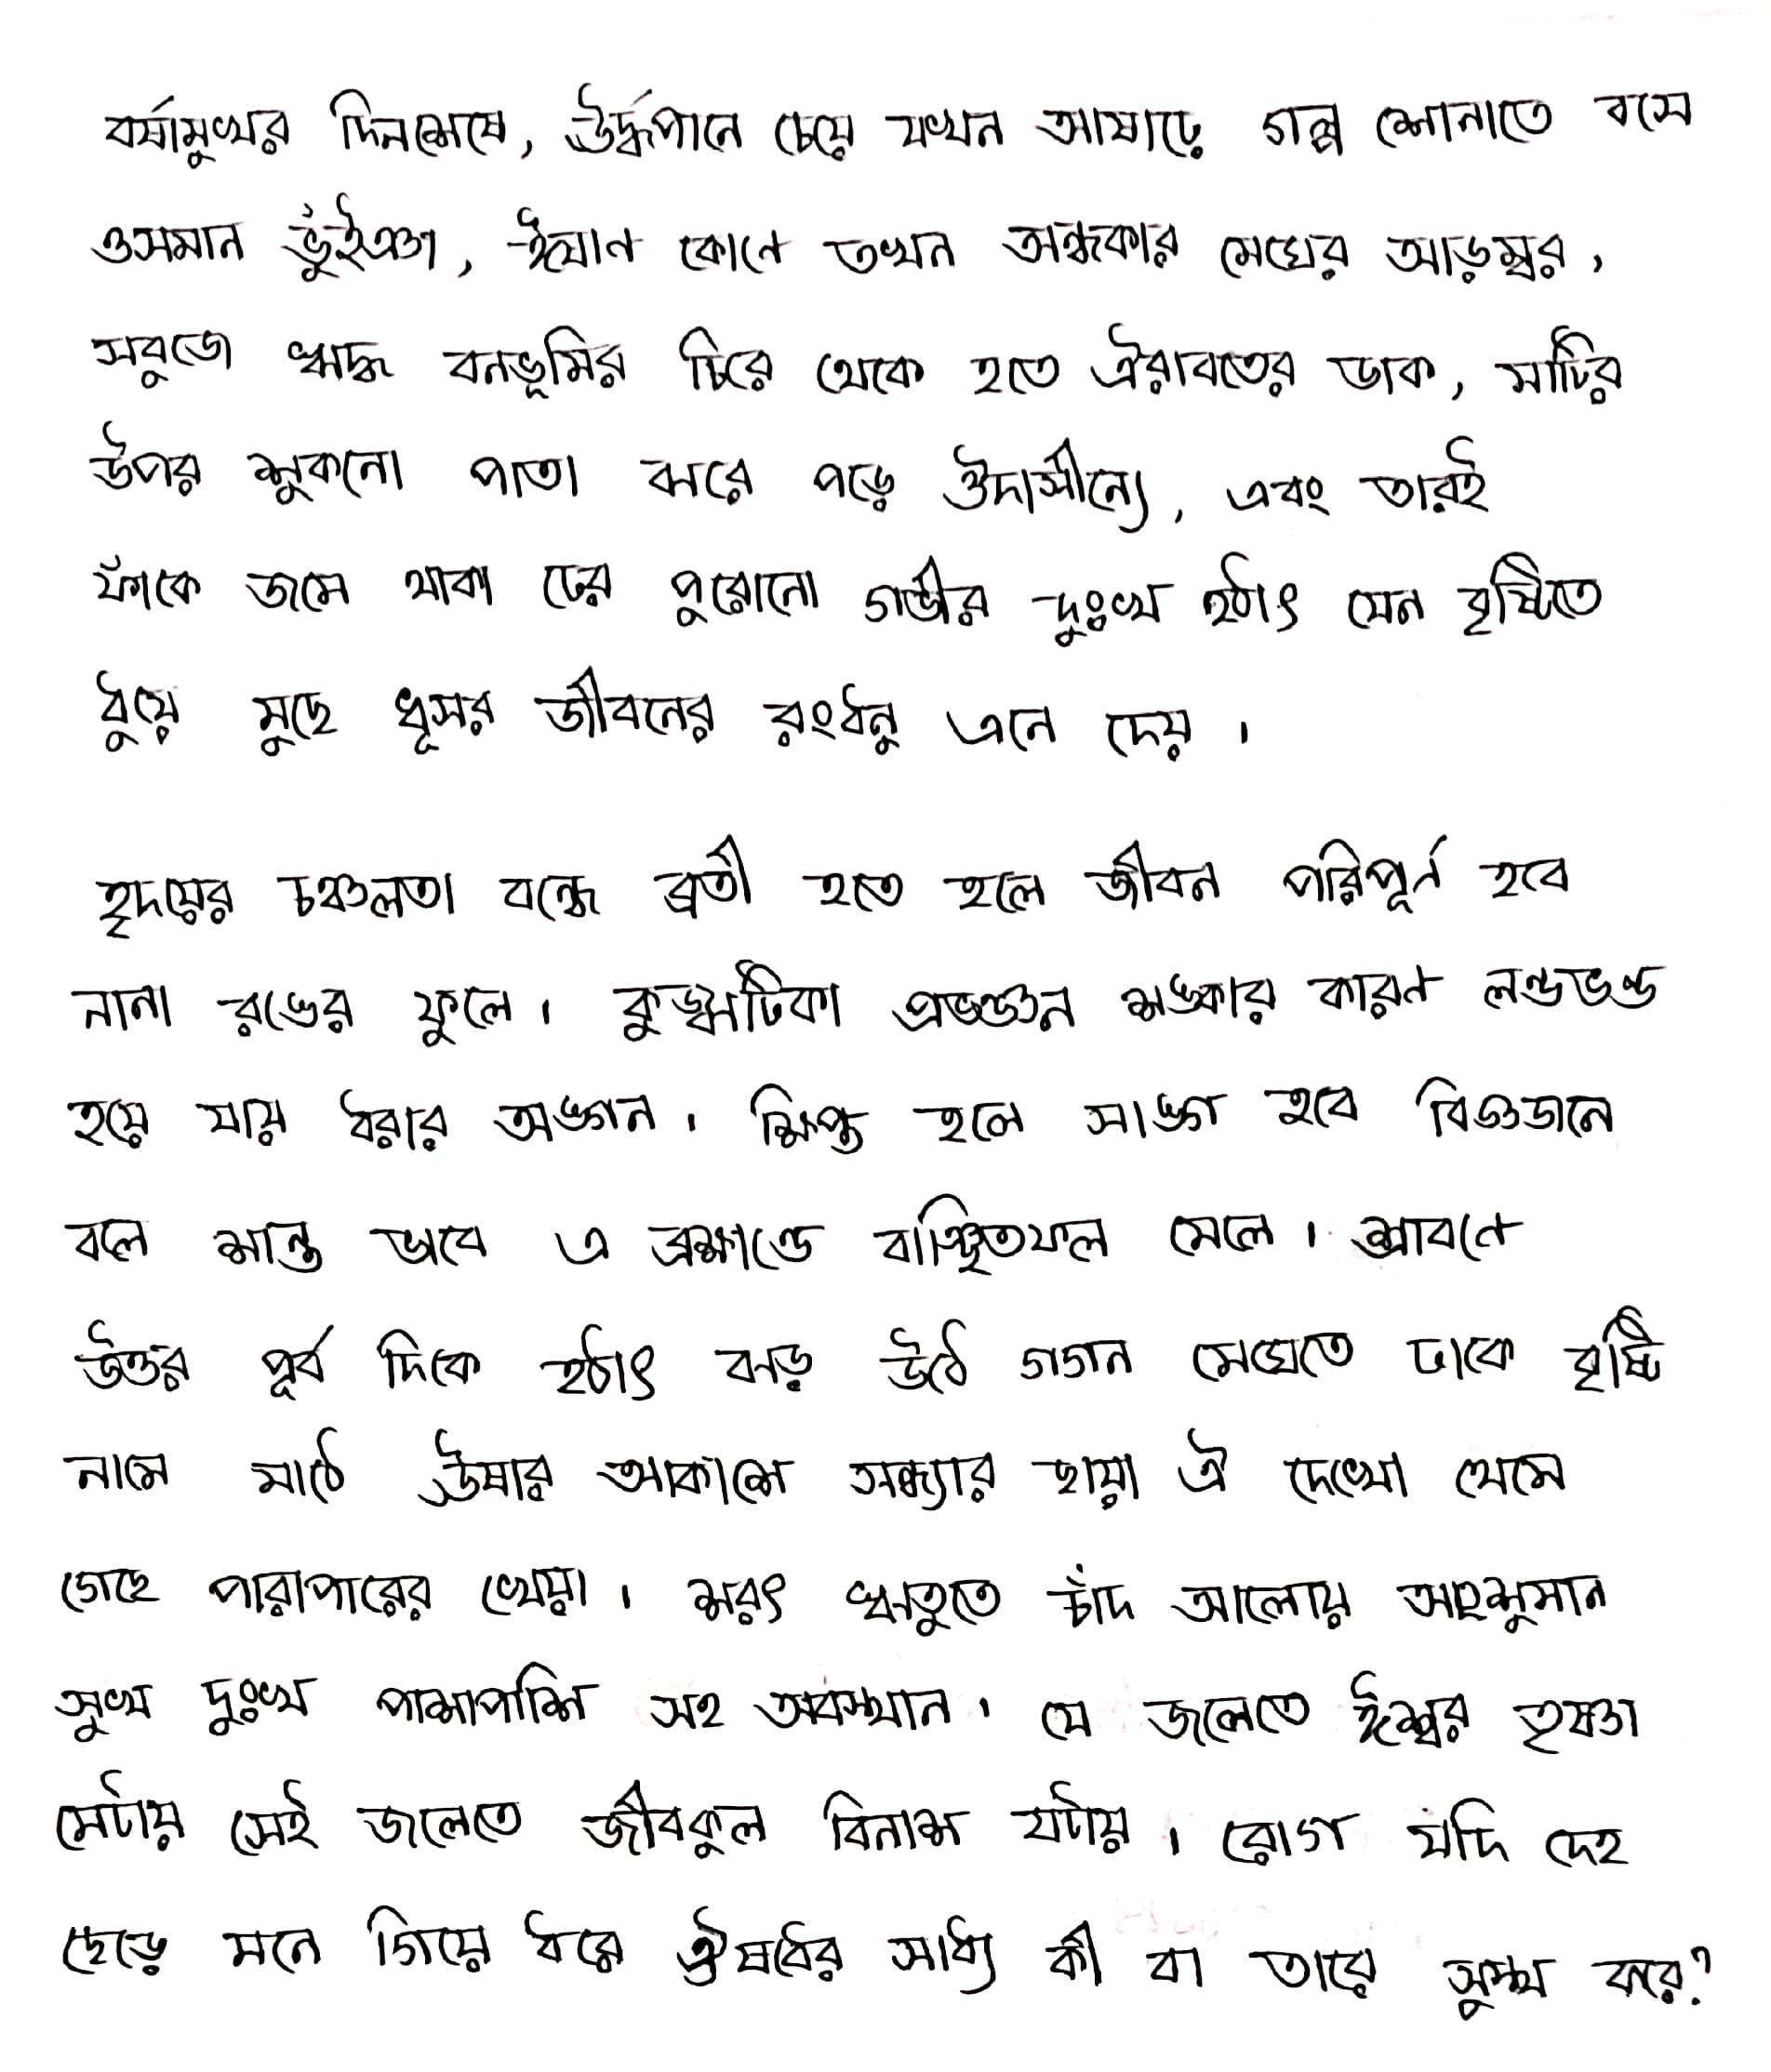 বর্ষামুখর দিনশেষে, ঊর্দ্ধপানে চেয়ে যখন আষাঢ়ে গল্প শোনাতে বসে
ওসমান ভুঁইঞা, ঈষাণ কোনে তখন অন্ধকার মেঘের আড়ম্বর,
সবুজে ঋদ্ধ বনভূমির চিরে থেকে হতে ঐরাবতের ডাক, মাটির
উপর শুকনো পাতা ঝরে পড়ে ঔদাসীন্যে, এবং তারই
ফাঁকে জমে থাকা ঢের পুরোনো গভীর দুঃখ হঠাৎ যেন বৃষ্টিতে
ধুয়ে মুছে ধূসর জীবনের রংধনু এনে দেয়।
হৃদয়ের চঞ্চলতা বন্ধে ব্রতী হতে হলে জীবন পরিপূর্ন হবে
নানা রঙের ফুলে। কুজ্ঝটিকা প্রভঞ্জন শঙ্কার কারণ লন্ডভন্ড
হয়ে যায় ধরার অঙ্গন। ক্ষিপ্ত হলে সাঙ্গ হবে বিজ্ঞজনে
বলে শান্ত ভাবে এ ব্রহ্মান্ডে বাঞ্ছিতফল মেলে। শ্রাবণে
উত্তর পূর্ব দিকে হঠাৎ ঝড় উঠে গগন মেঘেতে ঢাকে বৃষ্টি
নামে মাঠে ঊষার আকাশে সন্ধ্যার ছায়া ঐ দেখো থেমে
গেছে পারাপারের খেয়া। শরৎ ঋতুতে চাঁদ আলোয় অংশুমান
সুখ দুঃখ পাশাপাশি সহ অবস্থান। যে জলেতে ঈশ্বর তৃষ্ণা
মেটায় সেই জলেতে জীবকুল বিনাশ ঘটায়। রোগ যদি দেহ
ছেড়ে মনে গিয়ে ধরে ঔষধের সাধ্য কী বা তারে সুস্থ করে?